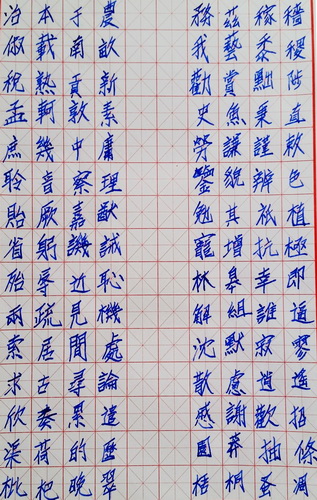 治本于農 務茲稼穡
俶載南畝 我藝黍稷
稅熟貢新 勸賞黜陟
孟軻敦素 史魚秉直
庶幾中庸 勞謙謹敕
聆音察理 鑒貌辨色
貽厥嘉猷 勉其祗植
省躬譏誡 寵增抗極
殆辱近恥 林皋幸即
兩疏見機 解組誰逼
索居閒處 沈默寂寥
求古尋論 散慮逍遙
欣奏累遣 感謝歡招
渠荷的歷 園莽抽條
枇杷晚翠 梧桐蚤凋